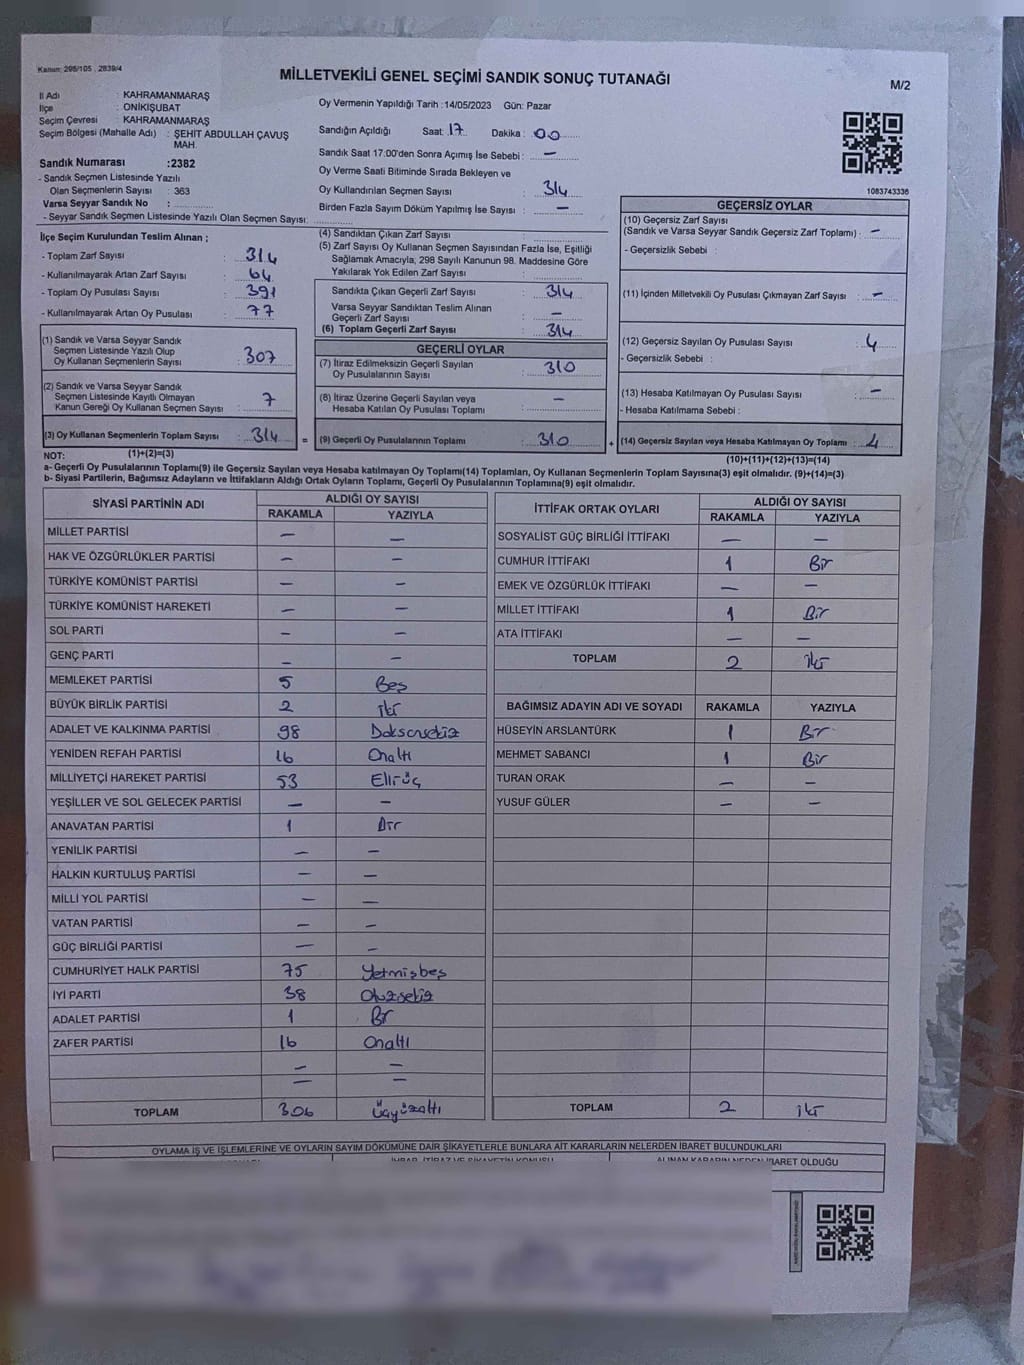 Kanun: 298/105 , 2839/4
MİLLETVEKİLİ GENEL SEÇİMİ SANDIK SONUÇ TUTANAĞI
M/2
İl Adı : KAHRAMANMARAŞ
İlçe : ONİKİŞUBAT
Seçim Çevresi : KAHRAMANMARAŞ
Seçim Bölgesi (Mahalle Adı) : ŞEHİT ABDULLAH ÇAVUŞ MAH.
Sandık Numarası :2382
- Sandık Seçmen Listesinde Yazılı
Olan Seçmenlerin Sayısı : 363
Varsa Seyyar Sandık No :
- Seyyar Sandık Seçmen Listesinde Yazılı Olan Seçmen Sayısı:
Oy Vermenin Yapıldığı Tarih :14/05/2023 Gün: Pazar
Sandığın Açıldığı Saat: 17 Dakika : 00
Sandık Saat 17:00'den Sonra Açımış İse Sebebi : —
Oy Verme Saati Bitiminde Sırada Bekleyen ve
Oy Kullandırılan Seçmen Sayısı : 314
Birden Fazla Sayım Döküm Yapılmış İse Sayısı : —
1083743336
İlçe Seçim Kurulundan Teslim Alınan ;
- Toplam Zarf Sayısı : 314
- Kullanılmayarak Artan Zarf Sayısı : 64
- Toplam Oy Pusulası Sayısı : 391
- Kullanılmayarak Artan Oy Pusulası : 77
(1) Sandık ve Varsa Seyyar Sandık
Seçmen Listesinde Yazılı Olup
Oy Kullanan Seçmenlerin Sayısı : 307
(2) Sandık ve Varsa Seyyar Sandık
Seçmen Listesinde Kayıtlı Olmayan
Kanun Gereği Oy Kullanan Seçmen Sayısı : 7
(3) Oy Kullanan Seçmenlerin Toplam Sayısı : 314
(1)+(2)=(3)
(4) Sandıktan Çıkan Zarf Sayısı :
(5) Zarf Sayısı Oy Kullanan Seçmen Sayısından Fazla İse, Eşitliği
Sağlamak Amacıyla, 298 Sayılı Kanunun 98. Maddesine Göre
Yakılarak Yok Edilen Zarf Sayısı :
Sandıkta Çıkan Geçerli Zarf Sayısı : 314
Varsa Seyyar Sandıktan Teslim Alınan
Geçerli Zarf Sayısı : —
(6) Toplam Geçerli Zarf Sayısı : 314
GEÇERLİ OYLAR
(7) İtiraz Edilmeksizin Geçerli Sayılan
Oy Pusulalarının Sayısı : 310
(8) İtiraz Üzerine Geçerli Sayılan veya
Hesaba Katılan Oy Pusulası Toplamı : —
= (9) Geçerli Oy Pusulalarının Toplamı : 310
GEÇERSİZ OYLAR
(10) Geçersiz Zarf Sayısı
(Sandık ve Varsa Seyyar Sandık Geçersiz Zarf Toplamı) : —
- Geçersizlik Sebebi :
(11) İçinden Milletvekili Oy Pusulası Çıkmayan Zarf Sayısı : —
(12) Geçersiz Sayılan Oy Pusulası Sayısı : 4
- Geçersizlik Sebebi :
(13) Hesaba Katılmayan Oy Pusulası Sayısı : —
- Hesaba Katılmama Sebebi :
+ (14) Geçersiz Sayılan veya Hesaba Katılmayan Oy Toplamı : 4
(10)+(11)+(12)+(13)=(14)
NOT:
a- Geçerli Oy Pusulalarının Toplamı(9) ile Geçersiz Sayılan veya Hesaba katılmayan Oy Toplamı(14) Toplamları, Oy Kullanan Seçmenlerin Toplam Sayısına(3) eşit olmalıdır. (9)+(14)=(3)
b- Siyasi Partilerin, Bağımsız Adayların ve İttifakların Aldığı Ortak Oyların Toplamı, Geçerli Oy Pusulalarının Toplamına(9) eşit olmalıdır.
SİYASİ PARTİNİN ADI ALDIĞI OY SAYISI
RAKAMLA YAZIYLA
MİLLET PARTİSİ — —
HAK VE ÖZGÜRLÜKLER PARTİSİ — —
TÜRKİYE KOMÜNİST PARTİSİ — —
TÜRKİYE KOMÜNİST HAREKETİ — —
SOL PARTİ — —
GENÇ PARTİ — —
MEMLEKET PARTİSİ 5 Beş
BÜYÜK BİRLİK PARTİSİ 2 iki
ADALET VE KALKINMA PARTİSİ 98 Doksansekiz
YENİDEN REFAH PARTİSİ 16 Onaltı
MİLLİYETÇİ HAREKET PARTİSİ 53 Elliüç
YEŞİLLER VE SOL GELECEK PARTİSİ — —
ANAVATAN PARTİSİ 1 Bir
YENİLİK PARTİSİ — —
HALKIN KURTULUŞ PARTİSİ — —
MİLLİ YOL PARTİSİ — —
VATAN PARTİSİ — —
GÜÇ BİRLİĞİ PARTİSİ — —
CUMHURİYET HALK PARTİSİ 75 Yetmişbeş
İYİ PARTİ 38 Otuzsekiz
ADALET PARTİSİ 1 Bir
ZAFER PARTİSİ 16 Onaltı
— —
— —
TOPLAM 306 Üçyüzaltı
İTTİFAK ORTAK OYLARI ALDIĞI OY SAYISI
RAKAMLA YAZIYLA
SOSYALİST GÜÇ BİRLİĞİ İTTİFAKI — —
CUMHUR İTTİFAKI 1 Bir
EMEK VE ÖZGÜRLÜK İTTİFAKI — —
MİLLET İTTİFAKI 1 Bir
ATA İTTİFAKI — —
TOPLAM 2 iki
BAĞIMSIZ ADAYIN ADI VE SOYADI RAKAMLA YAZIYLA
HÜSEYİN ARSLANTÜRK 1 Bir
MEHMET SABANCI 1 Bir
TURAN ORAK — —
YUSUF GÜLER — —
TOPLAM 2 iki
OYLAMA İŞ VE İŞLEMLERİNE VE OYLARIN SAYIM DÖKÜMÜNE DAİR ŞİKAYETLERLE BUNLARA AİT KARARLARIN NELERDEN İBARET BULUNDUKLARI
İHBAR, İTİRAZ VE ŞİKAYETİN KONUSU ALINAN KARARIN NEDEN İBARET OLDUĞU